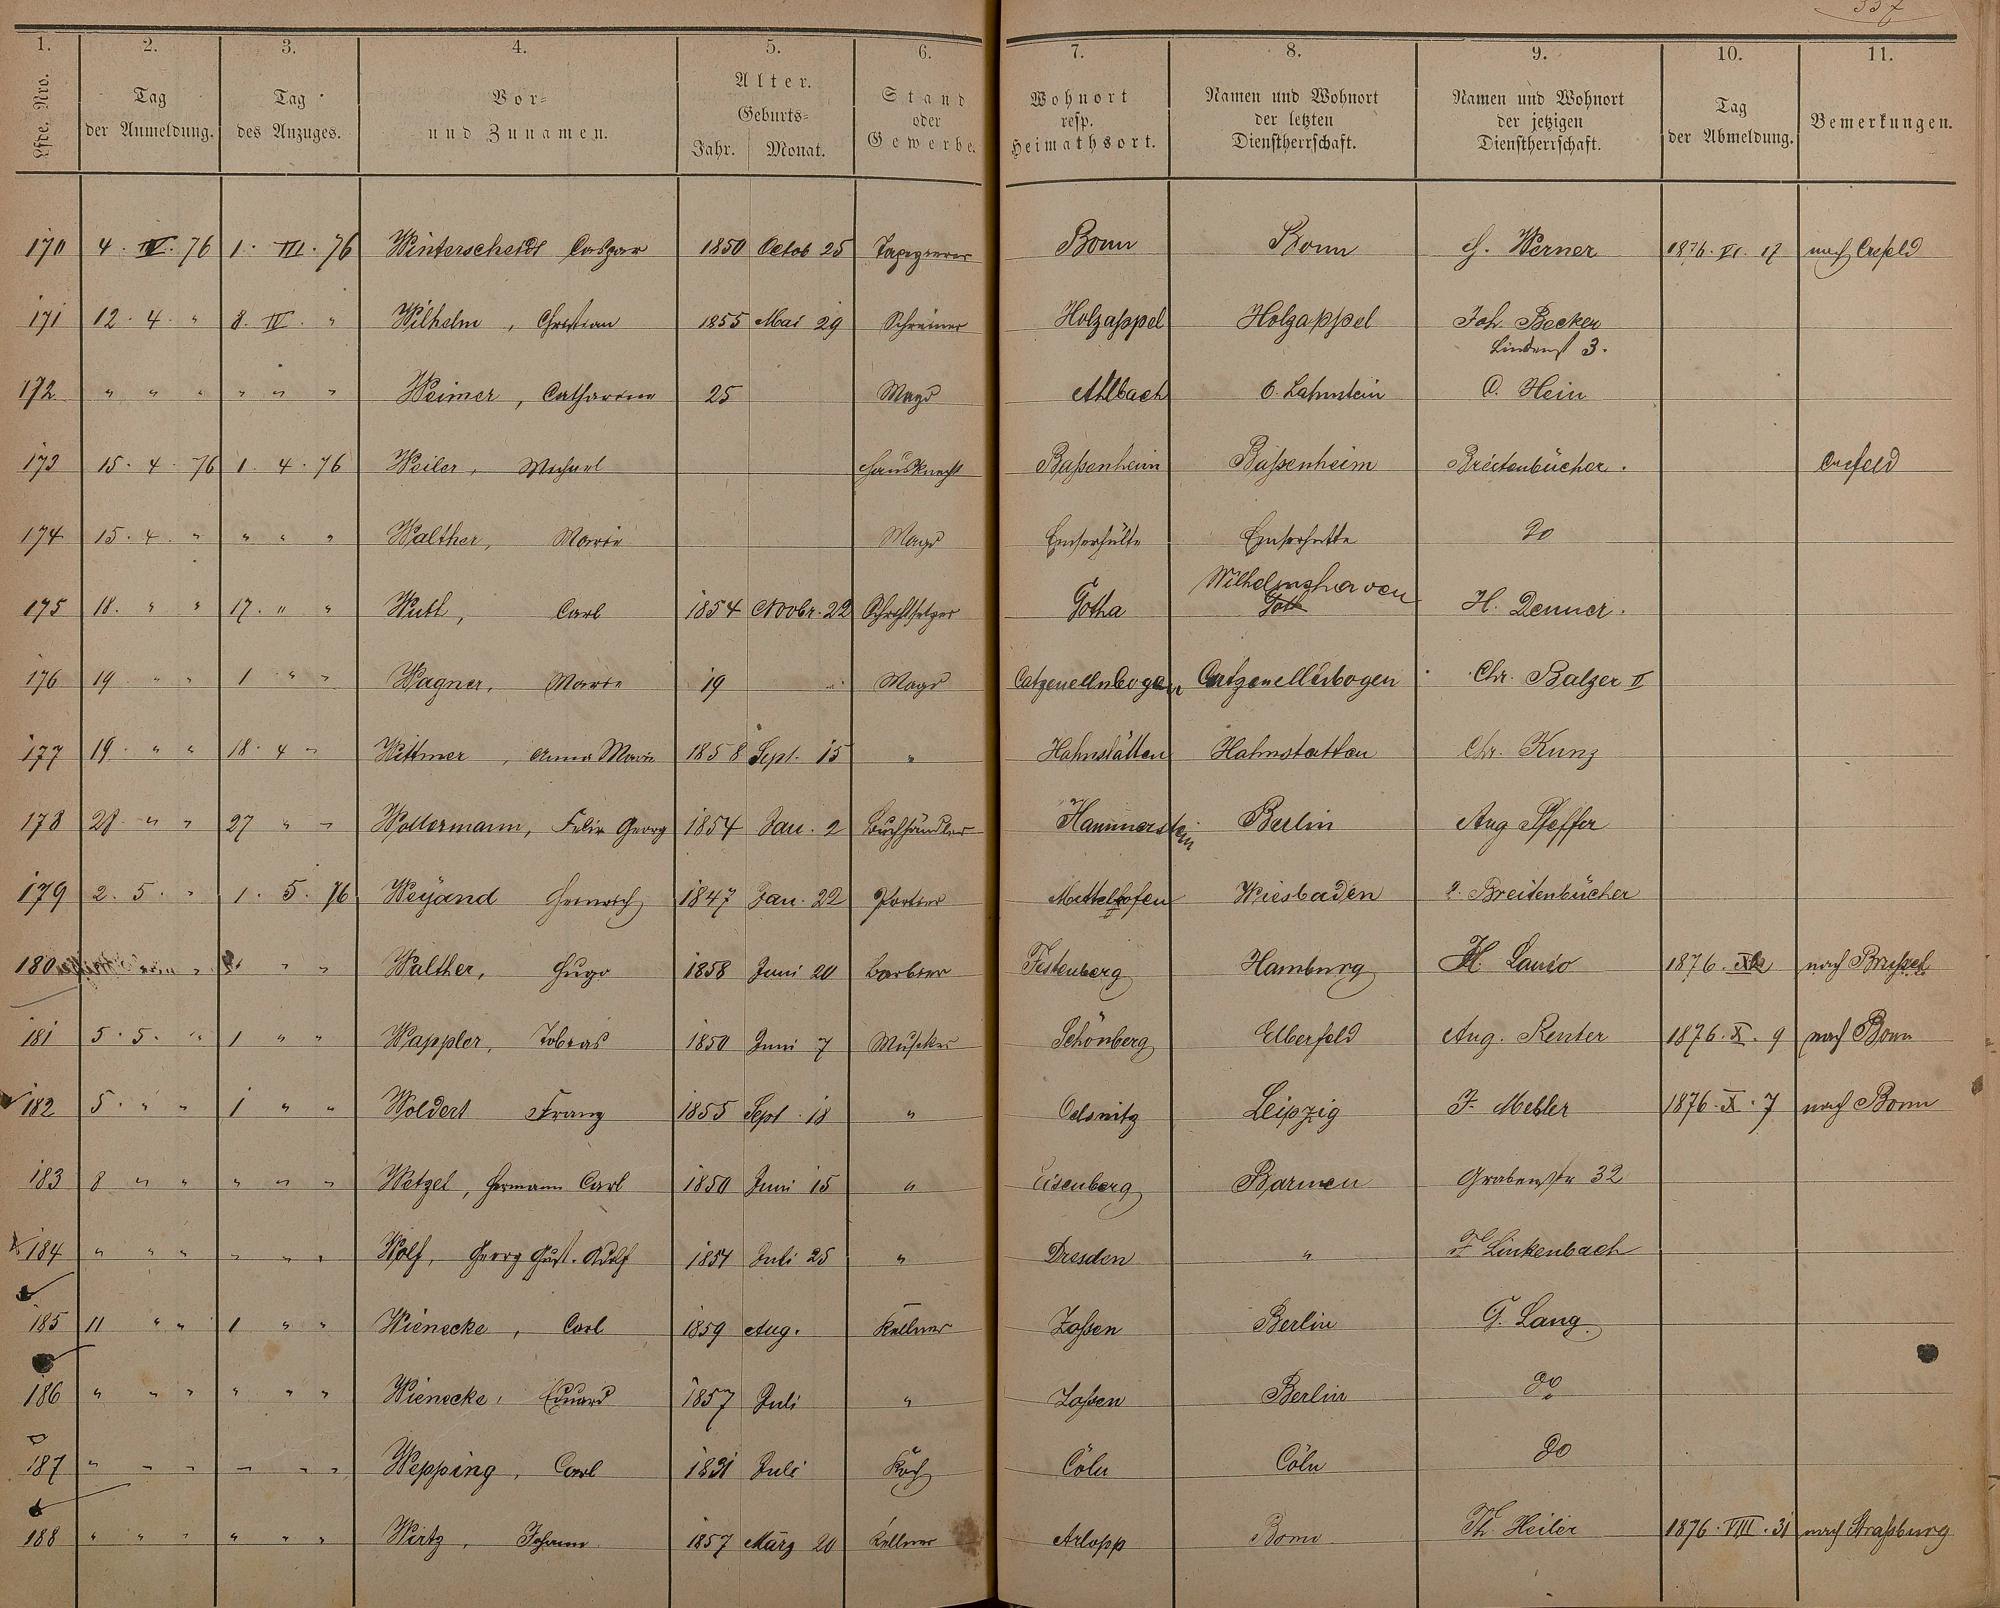 337
1. 2. 3. 4. 5. 6. 7. 8. 9. 10. 11.
Lfde. Nro. | Tag der Anmeldung. | Tag des Anzuges. | Vor- und Zunamen. | Alter. Geburts- Jahr. Monat. | Stand oder Gewerbe. | Wohnort resp. Heimathsort. | Namen und Wohnort der letzten Dienstherrschaft. | Namen und Wohnort der jetzigen Dienstherrschaft. | Tag der Abmeldung. | Bemerkungen.
170 4. IV. 76 1. III. 76 Winterscheidt Caspar 1850 Octob 25 Tapezierer Bonn Bonn H. Werner 1876. VI. 17 nach Crefeld
171 12. 4. " 8. IV. " Wilhelm, Christian 1855 Mai 29 Schreiner Holzappel Holzappel Joh. Becker
Lindenst 3.
172 " " " " " " Weimer, Catharina 25 Magd Ahlbach O. Lahnstein C. Hein
173 15. 4. 76 1. 4. 76 Weiler, Michael Hausknecht Baßenheim Baßenheim Breitenbücher. Crefeld
174 15. 4. " " " " Walther, Marie Magd Emserhütte Emserhütte do
175 18. " " 17. " " Carl 1854 Novbr. 22 Schriftsetzer Gotha Wilhelmshaven H. Denner.
176 19 " " 1 " " Wagner, Marie 19 " Magd Catzenellnbogen Catzenellnbogen Chr. Balzer II
177 19. " " 18. 4 " Wittmer, Anna Marie 1858 Sept. 15 " Hahnstätten Hahnstatten Chr. Kunz
178 28 " " 27 " " Woltermann, Felix Georg 1854 Jan. 2 Buchhändler Hammerstein Berlin Aug Pfeffer
179 2. 5. " 1. 5. 76 Weyand Heinrich 1847 Jan. 22 Portier Mittelhofen Wiesbaden Breitenbücher
180 " " " Walther, Hugo 1858 Juni 20 Barbier Festenberg Hamburg H. 1876. nach Brüssel
181 5. 5. " 1 " " Wappler, Tobias 1850 Juni 7 Musiker Schönberg Elberfeld Aug. Reuter 1876. X. 9 nach Bonn
182 5. " " 1 " " Woldert Franz 1855 Sept. 18 " Oelsnitz Leipzig F. Mebler 1876. X. 7 nach Bonn
183 8 " " " " " Wetzel, Hermann Carl 1850 Juni 15 " Eisenberg Barmen Grabenstr 32
184 " " " " " " Wolf, Georg Gust. Adolf 1854 Juli 25 " Dresden " F Linkenbach
185 11 " " 1 " " Wienecke, Carl 1859 Aug. Kellner Zoßen Berlin G. Lang.
186 " " " " " " Wienecke, Eduard 1857 Juli " Zoßen Berlin do
187 " " " " " " Wepping, Carl Juli Koch Cöln Cöln do
188 " " " " " " Wirtz, Johann 1857 März 20 Kellner Bonn Th. Heiler 1876. VIII. 31 nach Straßburg